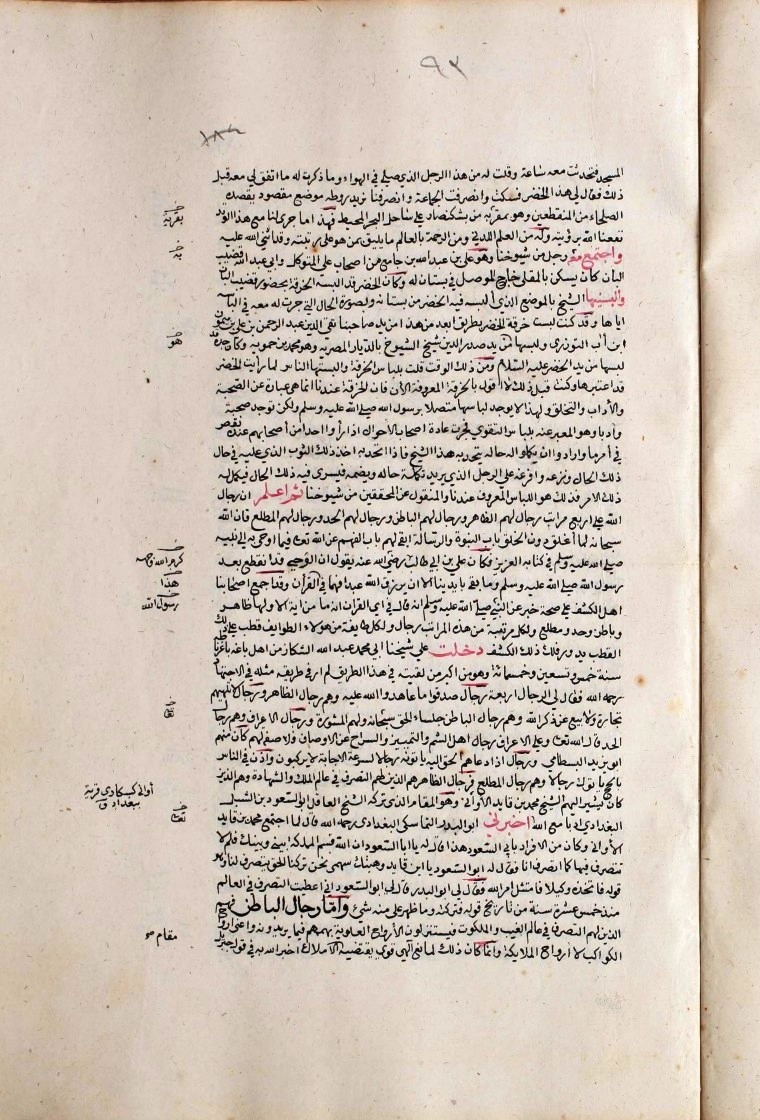 ٩٢
١٨٤
المسجد فتحدثت معه ساعة وقلت له من هذا الرجل الذي صلي في الهواء وما ذكرت له ما اتفق لي معه قبل
ذلك فقال لي هذا الخضر فسكت وانصرفت الجماعة وانصرفنا نريد روطه موضع مقصود يقصده
الصلحاء من المنقطعين وهو بمقربة من بشكنصار على ساحل البحر المحيط فهذا ما جرى لنا مع هذا الوتد
نفعنا الله برؤيته وله من العلم اللدني ومن الرحمة بالعالم ما يليق بمن هو على رتبته وقد اثني الله عليه
واجتمع معه رجل من شيوخنا وهو علي بن عبد الله بن جامع من اصحاب علي المتوكل وابي عبد الله قضيب
البان كان يسكن بالمقلى خارج الموصل في بستان له وكان الخضر قد البسه الخرقة بحضور قضيب البان
والبسنيها الشيخ بالموضع الذي البسه فيه الخضر من بستانه وبصورة الحال التي جرت له معه في الباسه
اياها وقد كنت لبست خرقة الخضر بطريق ابعد من هذا من يد صاحبنا تقي الدين عبد الرحمن بن علي بن ميمون
ابن اب التوزري ولبسها من يد صدر الدين شيخ الشيوخ بالديار المصريه وهو محمد بن حمويه وكان جده قد
لبسها من يد الخضر عليه السلام ومن ذلك الوقت قلت بلباس الخرقة والبستها الناس لما رايت الخضر
قد اعتبرها وكنت قبل ذلك لا اقول بالخرقة المعروفة الآن فان الخرقة عندنا انما هي عبارة عن الصحبة
والآداب والتخلق ولهذا لا يوجد لباسها متصلا برسول الله صلى الله عليه وسلم ولكن توجد صحبة
وادبا وهو المعبر عنه بلباس التقوي فجرت عادة اصحاب الاحوال اذا رأوا واحدا من أصحابهم عنده نقص
في أمر ما وارادوا ان يكملوا له حاله يتحد به هذا الشيخ فاذا اتحد به اخذ ذلك الثوب الذي عليه في حال
ذلك الحال ونزعه وافرغه على الرجل الذي يريد تكملة حاله ويضمه فيسرى فيه ذلك الحال فيكمل له
ذلك الامر فذلك هو اللباس المعروف عندنا والمنقول عن المحققين من شيوخنا ثم اعلم ان رجال
الله على اربع مراتب رجال لهم الظاهر ورجال لهم الباطن ورجال لهم الحد ورجال لهم المطلع فان الله
سبحانه لما أغلق دون الخلق باب النبوة والرسالة ابقى لهم باب الفهم عن الله تعالى فيما اوحي به الى نبيه
صلى الله عليه وسلم في كتابه العزيز وكان علي بن ابي طالب رضي الله عنه يقول ان الوحي قد انقطع بعد
رسول الله صلى الله عليه وسلم وما بقي بايدينا الا ان يرزق الله عبدا فهما في القرآن وقد اجمع اصحابنا
اهل الكشف على صحة خبر عن النبي صلى الله عليه وسلم انه قال في آي القران انه ما من اية الا ولها ظاهر
وباطن وحد ومطلع ولكل مرتبة من هذه المراتب رجال ولكل طايفة من هؤلاء الطوايف قطب على ذلك
القطب يدور فلك ذلك الكشف دخلت على شيخنا ابي محمد عبد الله الشكاز من اهل باغه باغرناطه
سنة خمس وتسعين وخمسمائة وهو من اكبر من لقيته في هذا الطريق لم ار في طريقه مثله في الاجتهاد
رحمه الله فقال لي الرجال اربعة رجال صدقوا ما عاهدوا الله عليه وهم رجال الظاهر ورجال لا تلهيهم
تجارة ولا بيع عن ذكر الله وهم رجال الباطن جلساء الحق سبحانه ولهم المشورة ورجال الاعراف وهم رجال
الحد قال الله تعالى وعلى الاعراف رجال اهل الشم والتمييز والسراح عن الاوصاف فلا صفة لهم كان منهم
ابو يزيد البسطامي ورجال اذا دعاهم الحق اليه ياتونه رجالا لسرعة الاجابة لا يركبون واذن في الناس
بالحج ياتوك رجالا وهم رجال المطلع فرجال الظاهر هم الذين لهم التصرف في عالم الملك والشهادة وهم الذين
كان يشير اليهم الشيخ محمد بن قايد الأواني وهو المقام الذي تركه الشيخ العاقل ابو السعود بن الشبل
البغدادي ادبا مع الله اخبرني ابو البدر التماسكي البغدادي رحمه الله قال لما اجتمع محمد بن قايد
الأواني وكان من الافراد بابي السعود هذا قال له يا ابا السعود ان الله قسم المملكة بيني وبينك فلم لا
تتصرف فيها كما اتصرف انا فقال له ابو السعود يا ابن قايد وهبتك سهمي نحن تركنا الحق يتصرف لنا وهو
قوله فاتخذه وكيلا فامتثل امر الله فقال لي ابو البدر قال لي ابو السعود اني اعطيت التصرف في العالم
منذ خمس عشرة سنة من تاريخ قوله فتركته وما ظهر علي منه شيء واما رجال الباطن فهم
الذين لهم التصرف في عالم الغيب والملكوت فيستنزلون الأرواح العلوية بهممهم فيما يريدونه واعني ارواح
الكواكب لا ارواح الملايكة وانما كان ذلك لمانع الهي قوي يقتضيه مقام الاملاك اخبر الله به في قول جبريل
بقربه
يد
هو
كرم الله وجهه
هذا
رسول الله
تعالى
أواني كسكارى قرية
ببغداد ق
تعالى
مقام صو